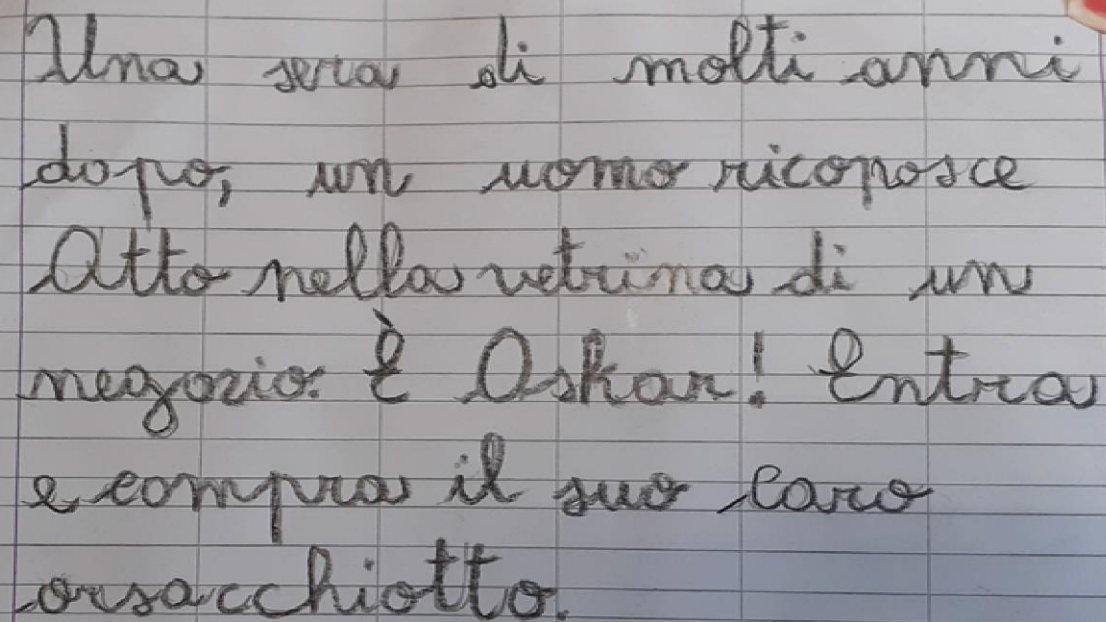 Una sera di molti anni
dopo, un uomo ricoposce
Otto nella vetrina di un
negozio. È Oskar! Entra
e compra il suo caro
orsacchiotto.